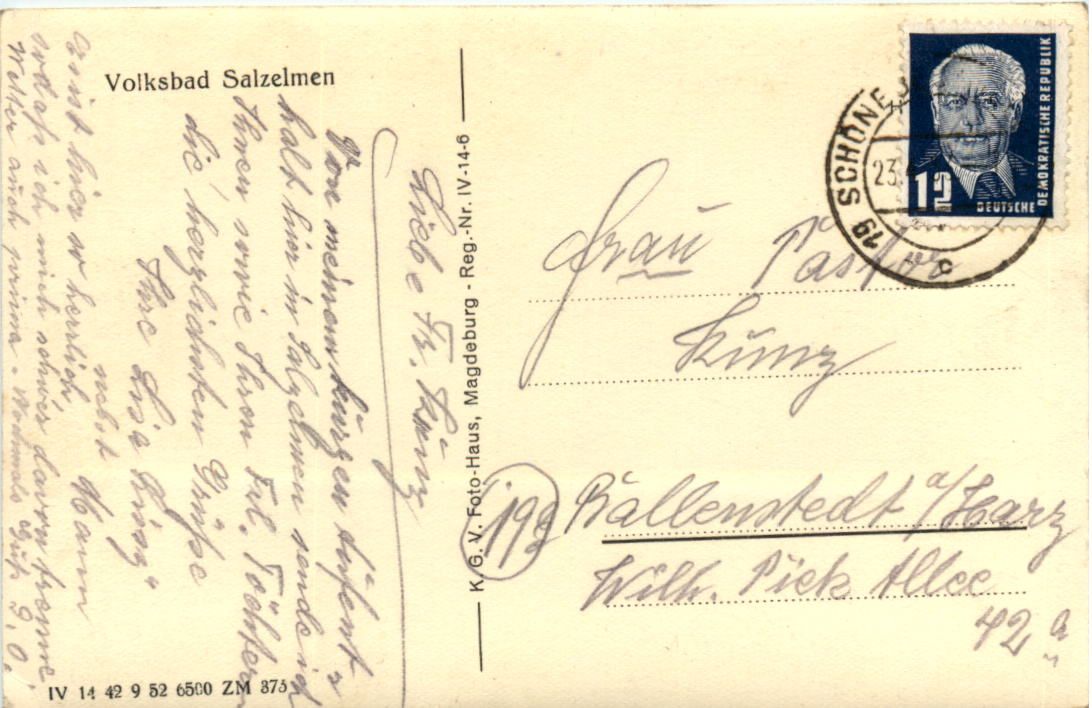 Volksbad Salzelmen
Liebe Fr. Kunz
Von meinem kurzen Aufent-
halt hier in Salzelmen sende ich
Ihnen, sowie Ihren Frl. Töchtern
die herzlichsten Grüße
Ihre Lisa
nebst Mann
Es ist hier so herrlich
sodaß ich mich schwer davon trenne.
Wetter auch prima.
K. G. V. Foto-Haus, Magdeburg - Reg.-Nr. IV-14-6
IV 14 42 9 52 6500 ZM 375
DEUTSCHE
DEMOKRATISCHE REPUBLIK
12
19 SCHÖNE
23
c
Frau Pastor
Kunz
(19b) Ballenstedt a/Harz
Wilh. Pieck Allee
42 a